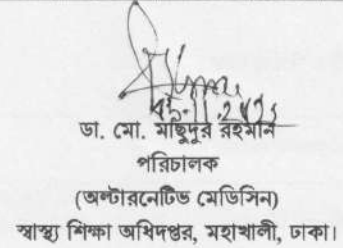 ডা. মো. মাছিদুর রহমান
পরিচালক
(অল্টারনেটিভ মেডিসিন)
স্বাস্থ্য শিক্ষা অধিদপ্তর, মহাখালী, ঢাকা।